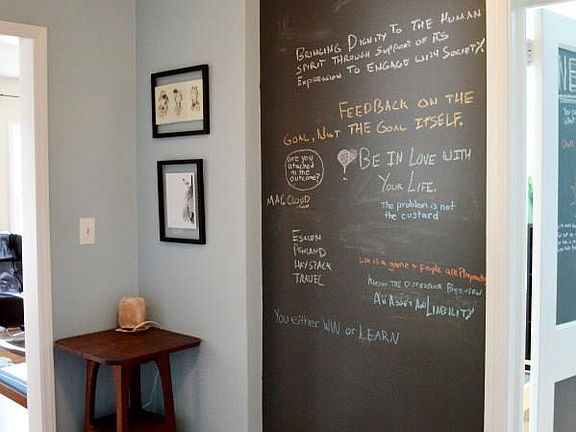 BRINGING DIGNITY TO THE HUMAN
SPIRIT THROUGH SUPPORT OF ITS
EXPRESSION TO ENGAGE WITH SOCIETY
FEEDBACK ON THE
GOAL, NOT THE GOAL ITSELF.
Are you
attached
to the
outcome?
BE IN LOVE WITH
YOUR LIFE.
MAGCLOUD
The problem is not
the custard
ESALEN
HAYSTACK
TRAVEL
Life is a game + People are
KNOW THE DIFFERENCE BETWEEN
AN ASSET AND LIABILITY
You either WIN or LEARN
NE